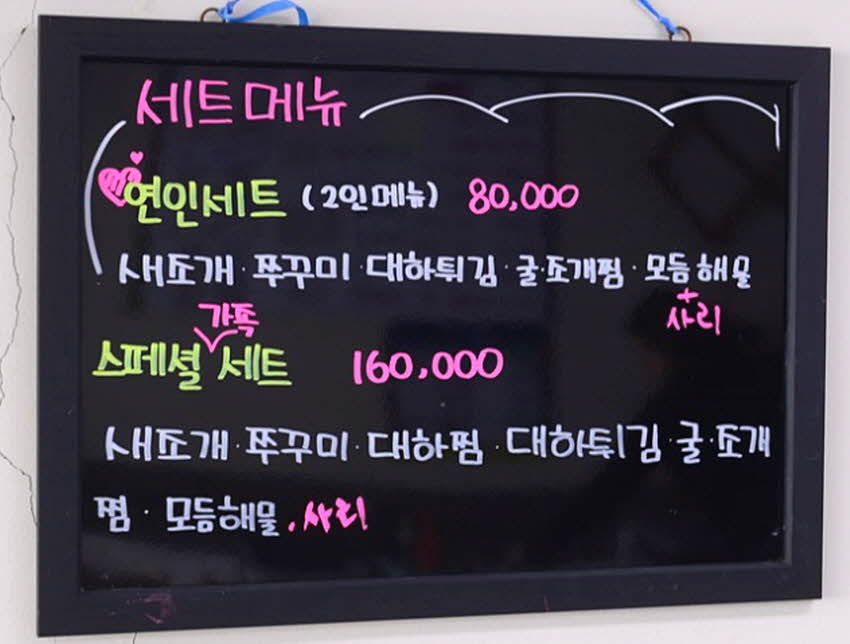 세트메뉴
연인세트 (2인메뉴) 80,000
새조개·쭈꾸미·대하튀김·굴·조개찜·모듬해물
+
사리
가족
스페셜 세트 160,000
새조개·쭈꾸미·대하찜·대하튀김·굴·조개
찜·모듬해물.사리